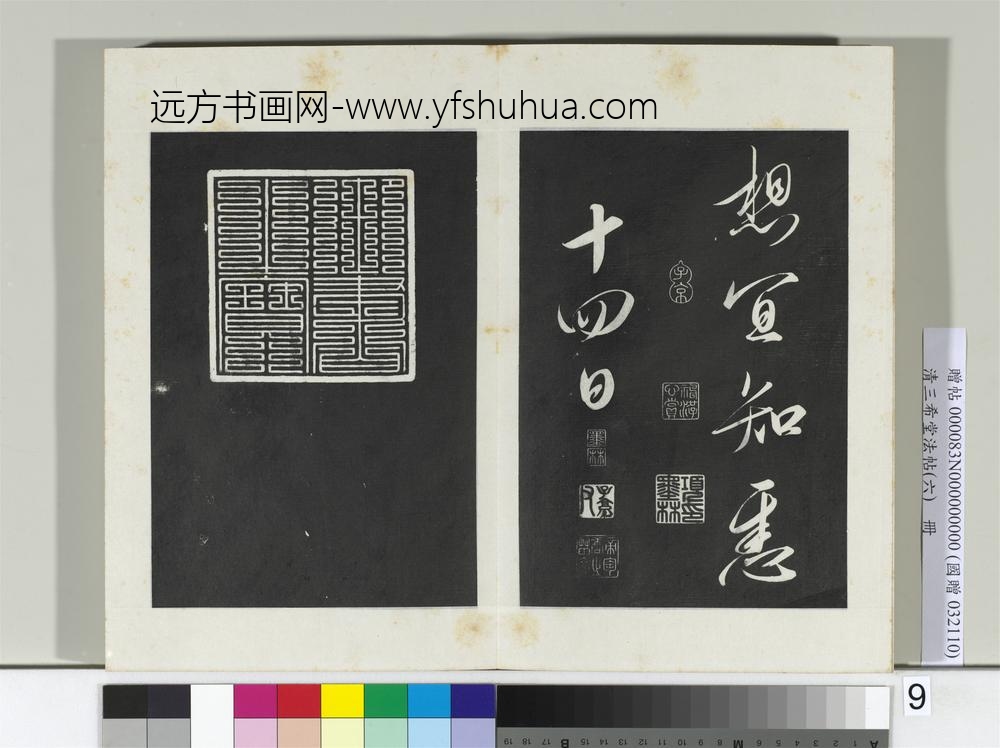 远方书画网-www.yfshuhua.com
想宜知悉
十四日
子京
項墨林印
墨林
子孫
贈帖 000083N000000000 (國贈 032110)
清三希堂法帖(六) 冊
9